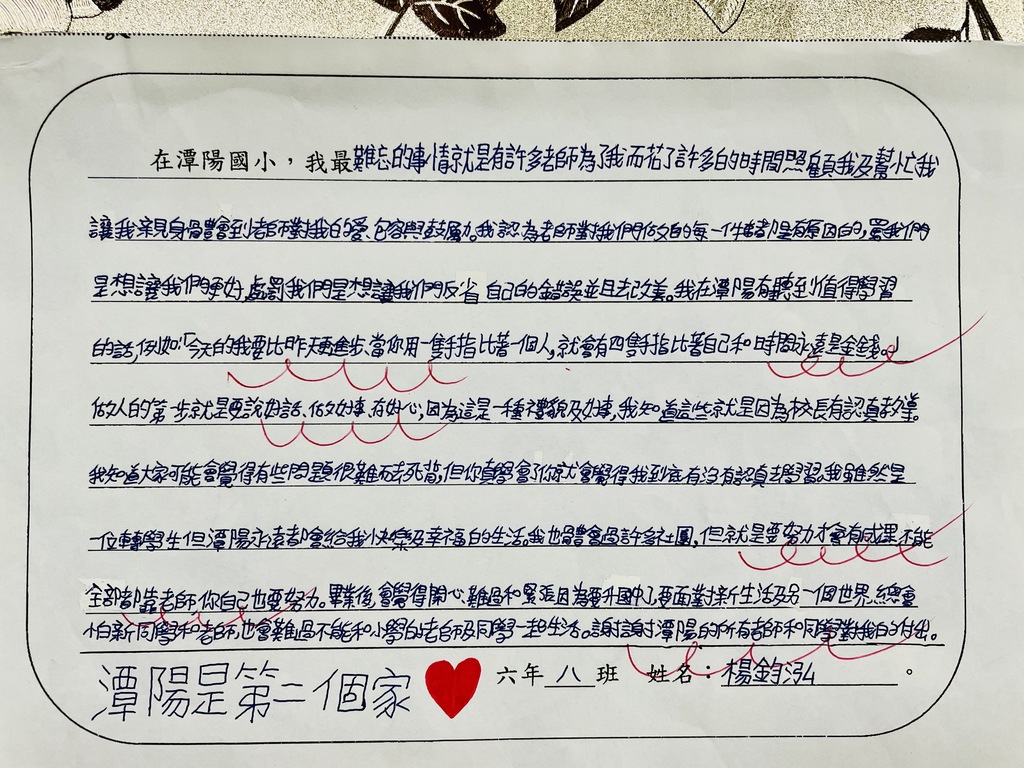 在潭陽國小，我最難忘的事情就是有許多老師為了我而花了許多的時間照顧我及幫忙我
讓我親身體會到老師對我的愛、包容與鼓勵。我認為老師對我們做的每一件事都是有原因的,罵我們
是想讓我們更好,處罰我們是想讓我們反省自己的錯誤並且去改善。我在潭陽有聽到值得學習
的話,例如:「今天的我要比昨天更進步、當你用一隻手指比著一個人,就會有四隻手指比著自己和時間永遠是金錢。」
做人的第一步就是要說好話、做好事、存好心,因為這是一種禮貌及好事,我知道這些就是因為校長有認真教導。
我知道大家可能會覺得有些問題很難而去死背,但你真學會了你就會覺得我到底有沒有認真去學習。我雖然是
一位轉學生但潭陽永遠都會給我快樂及幸福的生活。我也體會過許多社團,但就是要努力才會有成果不能
全部都靠老師,你自己也要努力。畢業後,會覺得開心、難過和緊張因為要升國中了要面對新生活及另一個世界,總會
怕新同學和老師也會難過不能和小學的老師及同學一起生活。謝謝潭陽的所有老師和同學對我的付出。
潭陽是第二個家 六年八班 姓名：楊鈞泓。